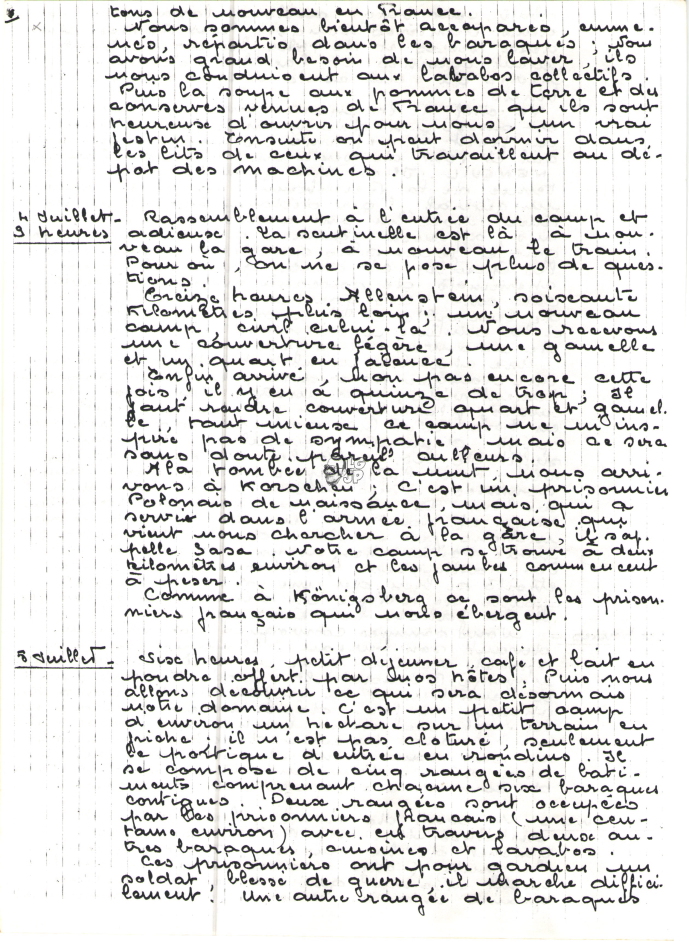 tons de nouveau en France.
Nous sommes bientôt accaparés, emme-
nés, répartis dans les baraques ; Nous
avons grand besoin de nous laver, ils
nous conduisent aux lavabos collectifs.
Puis la soupe aux pommes de terre et des
conserves venues de France qu'ils sont
heureuse d'ouvrir pour nous, un vrai
festin. Ensuite on peut dormir dans
les lits de ceux qui travaillent au dé-
pot des machines.
4 Juillet - Rassemblement à l'entrée du camp et
9 heures adieuse. La sentinelle est là à nou-
veau la gare, à nouveau le train.
Pour où, on ne se pose plus de ques-
tions.
Treize heures, Allenstein, soiseante
kilomètres plus loin ; un nouveau
camp, celui-là. Nous recevons
une couverture légère, une gamelle
et un quart en faïence.
Enfin arrivé, non pas encore cette
fois, il y en à quinze de trop ; Il
faut rendre couverture quart et gamel.
le, tant mieuse ce camp ne m'ins-
pire pas de sympatie, mais ce sera
sans doute pareil ailleurs.
A la tombée de la nuit, nous arri-
vons à Korschen ; C'est un prisonnier
Polonais de naissance, mais qui a
servit dans l'armée française qui
vient nous chercher à la gare, il s'ap.
pelle Sasa. Notre camp se trouve à deux
kilomètres environ et les jambes commencent
à peser.
Comme à Königsberg ce sont les prison.
niers français qui nous ébergent.
5 Juillet - Six heures, petit déjeuner, café et lait en
poudre offert par nos hôtes. Puis nous
allons découvrir ce qui sera désormais
notre domaine. C'est un petit camp
d'environ un hectare sur un terrain en
friche ; il n'est pas cloturé, seulement
le portique d'entrée en rondins. Il
se compose de cinq rangées de bati-
ments comprenant chacune six baraques
contigues. Deux rangées sont occupées
par les prisonniers français (une cen-
taine environ) avec en travers deux au-
tres baraques, cuisines et lavabos.
Ces prisonniers ont pour gardien un
soldat, blessé de guerre, il marche diffici-
lement. Une autre rangée de baraques